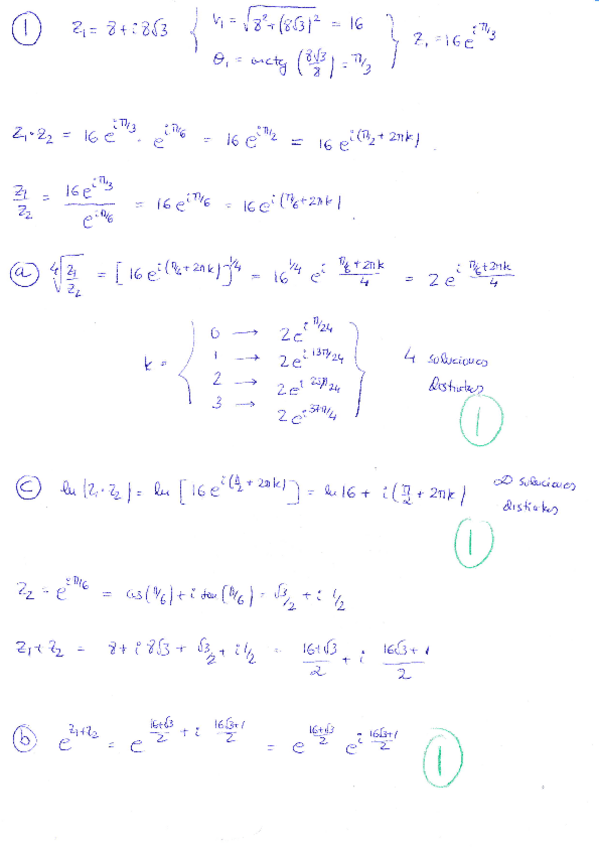 ① z₁ = 8 + i 8√3 { r₁ = √(8² + (8√3)²) = 16
θ₁ = arctg (8√3/8) = π/3 } z₁ = 16 e^{iπ/3}
z₁·z₂ = 16 e^{iπ/3} · e^{iπ/6} = 16 e^{iπ/2} = 16 e^{i(π/2 + 2πk)}
z₁/z₂ = 16 e^{iπ/3} / e^{iπ/6} = 16 e^{iπ/6} = 16 e^{i(π/6 + 2πk)}
ⓐ ⁴√(z₁/z₂) = [16 e^{i(π/6 + 2πk)}]^{1/4} = 16^{1/4} e^{i (π/6 + 2πk)/4} = 2 e^{i (π/6 + 2πk)/4}
k = { 0 → 2e^{iπ/24}
1 → 2e^{i13π/24} 4 soluciones
2 → 2e^{i25π/24} distintas
3 → 2e^{i37π/4} }
1
ⓒ ln(z₁·z₂) = ln [16 e^{i(π/2 + 2πk)}] = ln 16 + i(π/2 + 2πk) ∞ soluciones
distintas
1
z₂ = e^{iπ/6} = cos(π/6) + i sen(π/6) = √3/2 + i 1/2
z₁ + z₂ = 8 + i 8√3 + √3/2 + i 1/2 = (16+√3)/2 + i (16√3+1)/2
ⓑ e^{z₁+z₂} = e^{(16+√3)/2 + i (16√3+1)/2} = e^{(16+√3)/2} e^{i (16√3+1)/2}
1